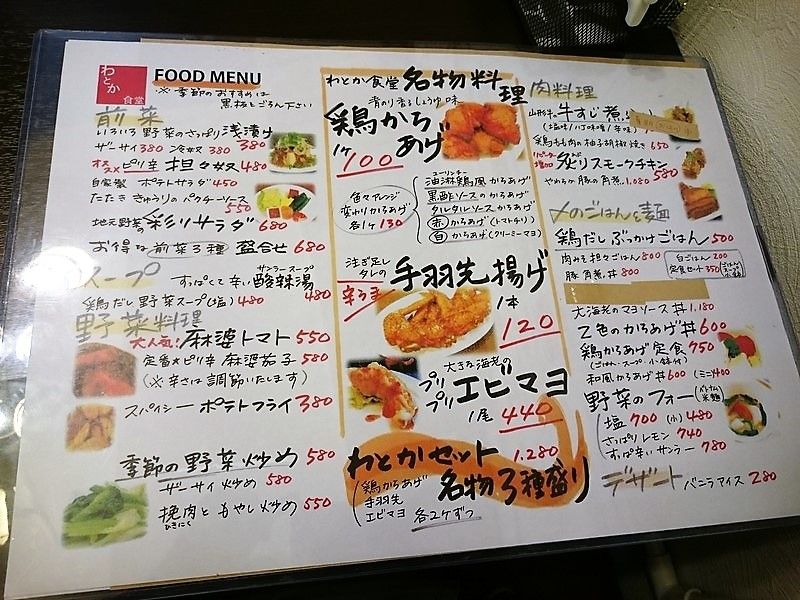 わとか
食堂
FOOD MENU
※季節のおすすめは
黒板をごらん下さい
前菜
いろいろ野菜のさっぱり浅漬け
380
ザーサイ 380 冷奴 380
オススメ ピリ辛 担々奴 480
自家製 ポテトサラダ 450
たたききゅうりのパクチーソース
550
地元野菜の彩りサラダ 680
お得な前菜3種盛合せ 680
スープ
すっぱくて辛い酸辣湯
サンラースープ
480
鶏だし野菜スープ(塩) 480
野菜料理
大人気! 麻婆トマト 550
定番★ピリ辛 麻婆茄子 580
(※辛さは調節いたします)
スパイシーポテトフライ 380
季節の野菜炒め 580
ザーサイ炒め 580
挽肉ともやし炒め 550
ひきにく
わとか食堂 名物料理
鶏からあげ
1ケ 100
色々アレンジ
変わりからあげ
各1ケ 130
ユーリンチー
油淋鶏風からあげ
黒酢ソースのからあげ
タルタルソースからあげ
赤からあげ(トマトチリ)
白からあげ(クリーミーマヨ)
注ぎ足し
タレの
手羽先揚げ
辛うま
1本
120
大きな海老の
プリプリ エビマヨ
1尾 440
わとかセット 1.280
名物3種盛り
鶏からあげ
手羽先
エビマヨ
各2ケずつ
肉料理
山形牛の牛すじ煮
鶏もも肉の柚子胡椒焼き 650
炙りスモークチキン
580
やわらか豚の角煮 1.080
〆のごはんと麺
鶏だしぶっかけごはん 500
肉みそ担々ごはん 800
豚角煮丼 800
白ごはん 200
定食セット 350
大海老のマヨソース丼 1.180
2色のからあげ丼 600
鶏からあげ定食 750
(ごはん・スープ・小鉢付)
和風からあげ丼 600 (ミニ400
野菜のフォー
(ベトナム米麺)
塩 700 (小) 480
さっぱりレモン 740
すっぱ辛いサンラー 780
デザート
バニラアイス 280